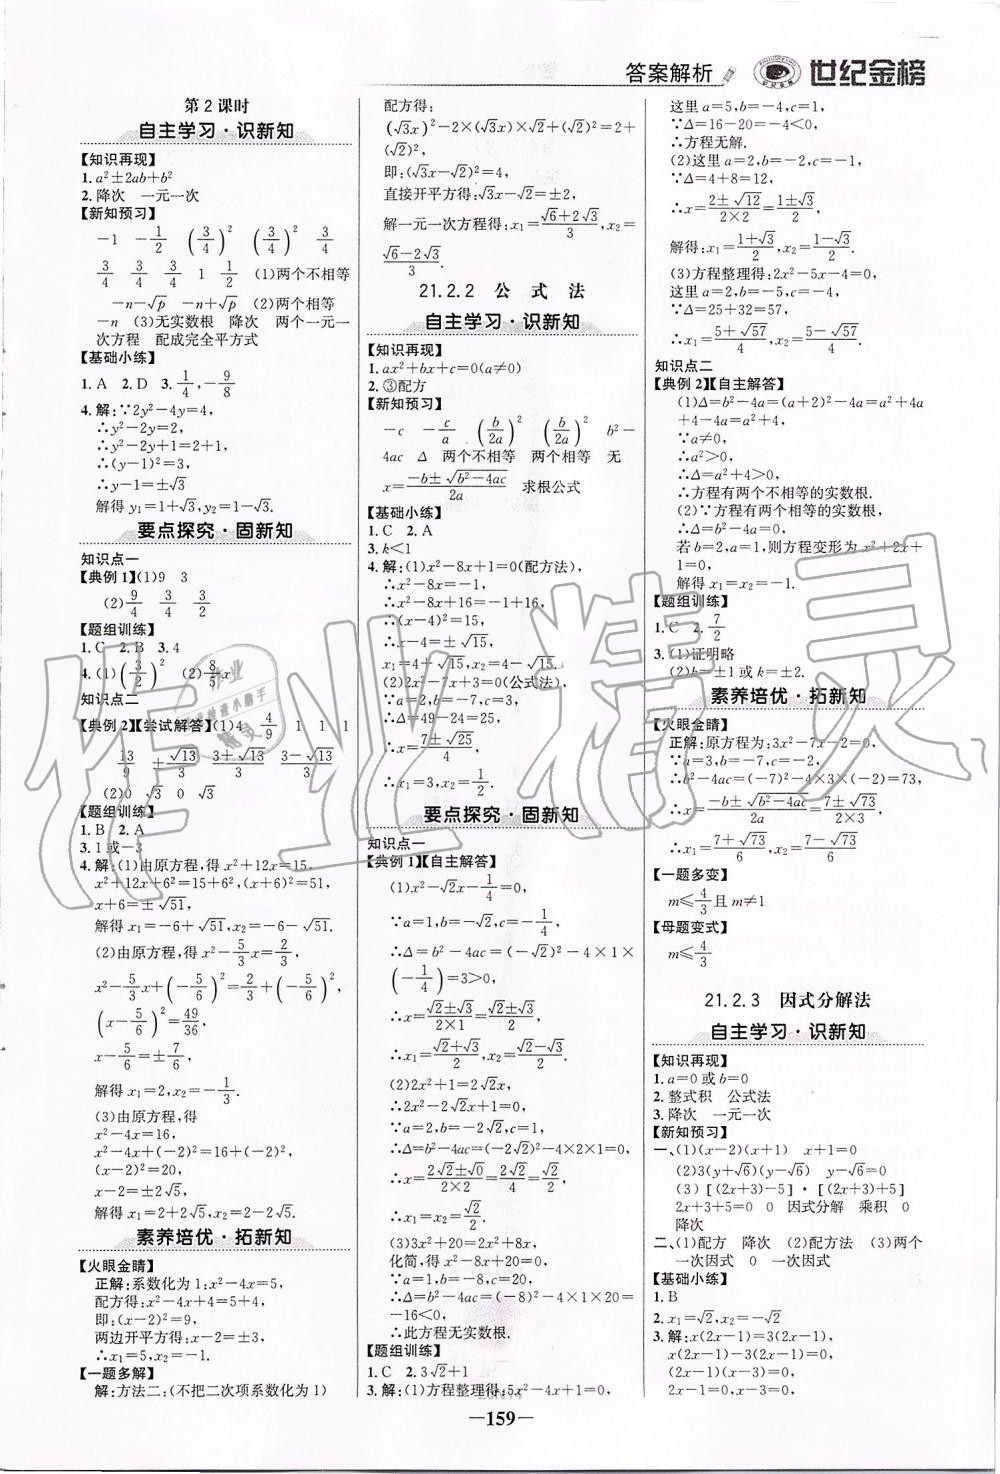 答案解析 世纪金榜
第2课时
自主学习·识新知
【知识再现】
1.a²±2ab+b²
2.降次 一元一次
【新知预习】
-1 -1/2 (3/4)² (3/4)² 3/4
3/4 3/4 3/4 1 1/2 (1)两个不相等
-n-√p -n+√p (2)两个相等
-n (3)无实数根 降次 两个一元一
次方程 配成完全平方式
【基础小练】
1.A 2.D 3.1/4,-9/8
4.解:∵2y²-4y=4,
∴y²-2y=2,
∴y²-2y+1=2+1,
∴(y-1)²=3,
∴y-1=±√3
解得y₁=1+√3,y₂=1-√3.
要点探究·固新知
知识点一
【典例1】(1)9 3
(2)9/4 3/4 3/2
【题组训练】
1.C 2.B 3.4
4.(1)(3/2)² (2)8/5x
知识点二
【典例2】【尝试解答】(1)4 4/9 1 1 1
13/9 ±√13/3 3+√13/3 3-√13/3
(2)0 √3 0 √3
【题组训练】
1.B 2.A
3.1或-3
4.解:(1)由原方程,得x²+12x=15,
x²+12x+6²=15+6²,(x+6)²=51,
x+6=±√51,
解得x₁=-6+√51,x₂=-6-√51.
(2)由原方程,得x²-5/3x=2/3,
x²-5/3x+(-5/6)²=2/3+(-5/6)²,
(x-5/6)²=49/36,
x-5/6=±7/6,
解得x₁=2,x₂=-1/3.
(3)由原方程,得
x²-4x=16,
x²-4x+(-2)²=16+(-2)²,
(x-2)²=20,
x-2=±2√5,
解得x₁=2+2√5,x₂=2-2√5.
素养培优·拓新知
【火眼金睛】
正解:系数化为1:x²-4x=5,
配方得:x²-4x+4=5+4,
即:(x-2)²=9,
两边开平方得:x-2=±3,
∴x₁=5,x₂=-1.
【一题多解】
解:方法二:(不把二次项系数化为1)
配方得:
(√3x)²-2×(√3x)×√2+(√2)²=2+
(√2)²,
即:(√3x-√2)²=4,
直接开平方得:√3x-√2=±2,
解一元一次方程得:x₁=√6+2√3/3,x₂=
√6-2√3/3.
21.2.2 公式法
自主学习·识新知
【知识再现】
1.ax²+bx+c=0(a≠0)
2.③配方
【新知预习】
-c -c/a (b/2a)² (b/2a)² b²-
4ac Δ 两个不相等 两个相等 无
x=-b±√b²-4ac/2a 求根公式
【基础小练】
1.C 2.A
3.k<1
4.解:(1)x²-8x+1=0(配方法),
∴x²-8x=-1,
∴x²-8x+16=-1+16,
∴(x-4)²=15,
∴x-4=±√15,
x₁=4+√15,x₂=4-√15.
(2)2x²-7x+3=0(公式法),
∴a=2,b=-7,c=3,
∴Δ=49-24=25,
∴x=7±√25/4,
∴x₁=3,x₂=1/2.
要点探究·固新知
知识点一
【典例1】【自主解答】
(1)x²-√2x-1/4=0,
∵a=1,b=-√2,c=-1/4,
∴Δ=b²-4ac=(-√2)²-4×1×
(-1/4)=3>0,
∴x=√2±√3/2×1=√2±√3/2,
∴x₁=√2+√3/2,x₂=√2-√3/2.
(2)2x²+1=2√2x,
∴2x²-2√2x+1=0,
∵a=2,b=-2√2,c=1,
∴Δ=b²-4ac=(-2√2)²-4×2×1=0,
∴x=2√2±√0/2×2=2√2/4=√2/2,
∴x₁=x₂=√2/2.
(3)3(x²+20)=2x²+8x,
化简,得x²-8x+20=0,
∵a=1,b=-8,c=20,
∴Δ=b²-4ac=(-8)²-4×1×20=
-16<0,
∴此方程无实数根.
【题组训练】
1.C 2.3√2+1
3.解:(1)方程整理得:5x²-4x+1=0,
这里a=5,b=-4,c=1,
∵Δ=16-20=-4<0,
∴方程无解.
(2)这里a=2,b=-2,c=-1,
∵Δ=4+8=12,
∴x=2±√12/2×2=1±√3/2,
解得:x₁=1+√3/2,x₂=1-√3/2.
(3)方程整理得:2x²-5x-4=0,
这里a=2,b=-5,c=-4,
∵Δ=25+32=57,
∴x₁=5+√57/4,x₂=5-√57/4.
知识点二
【典例2】【自主解答】
(1)Δ=b²-4a=(a+2)²-4a=a²+4a
+4-4a=a²+4,
∵a≠0,
∴a²>0,
∴Δ=a²+4>0,
∴方程有两个不相等的实数根.
(2)∵方程有两个相等的实数根,
∴Δ=b²-4a=0,
若b=2,a=1,则方程变形为x²+2x+
1=0,
解得x₁=x₂=-1.
【题组训练】
1.C 2.7/2
3.(1)证明略
(2)k=±1或k=±2.
素养培优·拓新知
【火眼金睛】
正解:原方程为:3x²-7x-2=0,
∵a=3,b=-7,c=-2,
∴b²-4ac=(-7)²-4×3×(-2)=73,
∴x=-b±√b²-4ac/2a=7±√73/2×3=7±√73/6,
∴x₁=7+√73/6,x₂=7-√73/6.
【一题多变】
m≤4/3且m≠1
【母题变式】
m≤4/3
21.2.3 因式分解法
自主学习·识新知
【知识再现】
1.a=0或b=0
2.整式积 公式法
3.降次 一元一次
【新知预习】
一、(1)(x-2)(x+1) x+1=0
(2)3(y+√6)(y-√6) y-√6=0
(3)[(2x+3)-5]·[(2x+3)+5]
2x+3+5=0 0 因式分解 乘积 0
降次
二、(1)配方 降次 (2)配方法 (3)两个
一次因式 0 一次因式
【基础小练】
1.B
2.x₁=√2,x₂=-√2
3.解:x(2x-1)=3(2x-1),
x(2x-1)-3(2x-1)=0,
(2x-1)(x-3)=0,
2x-1=0,x-3=0,
—159—
作业精灵